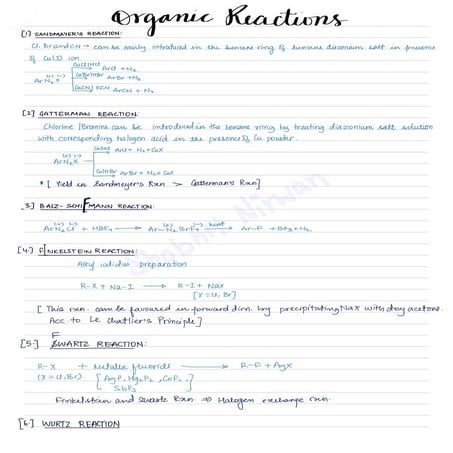 Organic Reactions
[1] SANDMAYER'S REACTION:
Cl, Br and CN → can be easily introduced in the benzene ring of benzene diazonium salt in presence
of Cu(I) ion
CuCl|HCl → ArCl + N₂
ArN₂X CuBr|HBr → ArBr + N₂
CuCN|KCN → ArCN + N₂
[2] GATTERMAN REACTION:
Chlorine /Bromine can be introduced in the benzene ring by treating diazonium salt solution
with corresponding halogen acid in the presence of Cu powder.
Cu|HCl → ArCl + N₂ + CuX
ArN₂X
Cu|HBr → ArBr + N₂ + CuX
* [ Yield in Sandmeyer's Rxn > Gatterman's Rxn]
3] BALZ-SCHIFMANN REACTION:
ArN₂Cl + HBF₄ → Ar-N₂BrF₄ heat → Ar-F + BF₃ + N₂
[4] FINKELSTEIN REACTION:
Alkyl iodides preparation
R-X + Na-I → R-I + NaX
[X = Cl, Br]
[ This rxn. can be favoured in forward dirn. by precipitating NaX with dry acetone.
Acc. to Le Chatlier's Principle]
F
[5.] SWARTZ REACTION:
R-X + Metallic fluoride → R-F + AgX
(X = Cl, Br) [AgF, Hg₂F₂, CoF₂,
SbF₃
Finkelstein and Swartz Rxn ⇒ Halogen exchange rxn.
[6.] WURTZ REACTION
Shabnm Nirwan